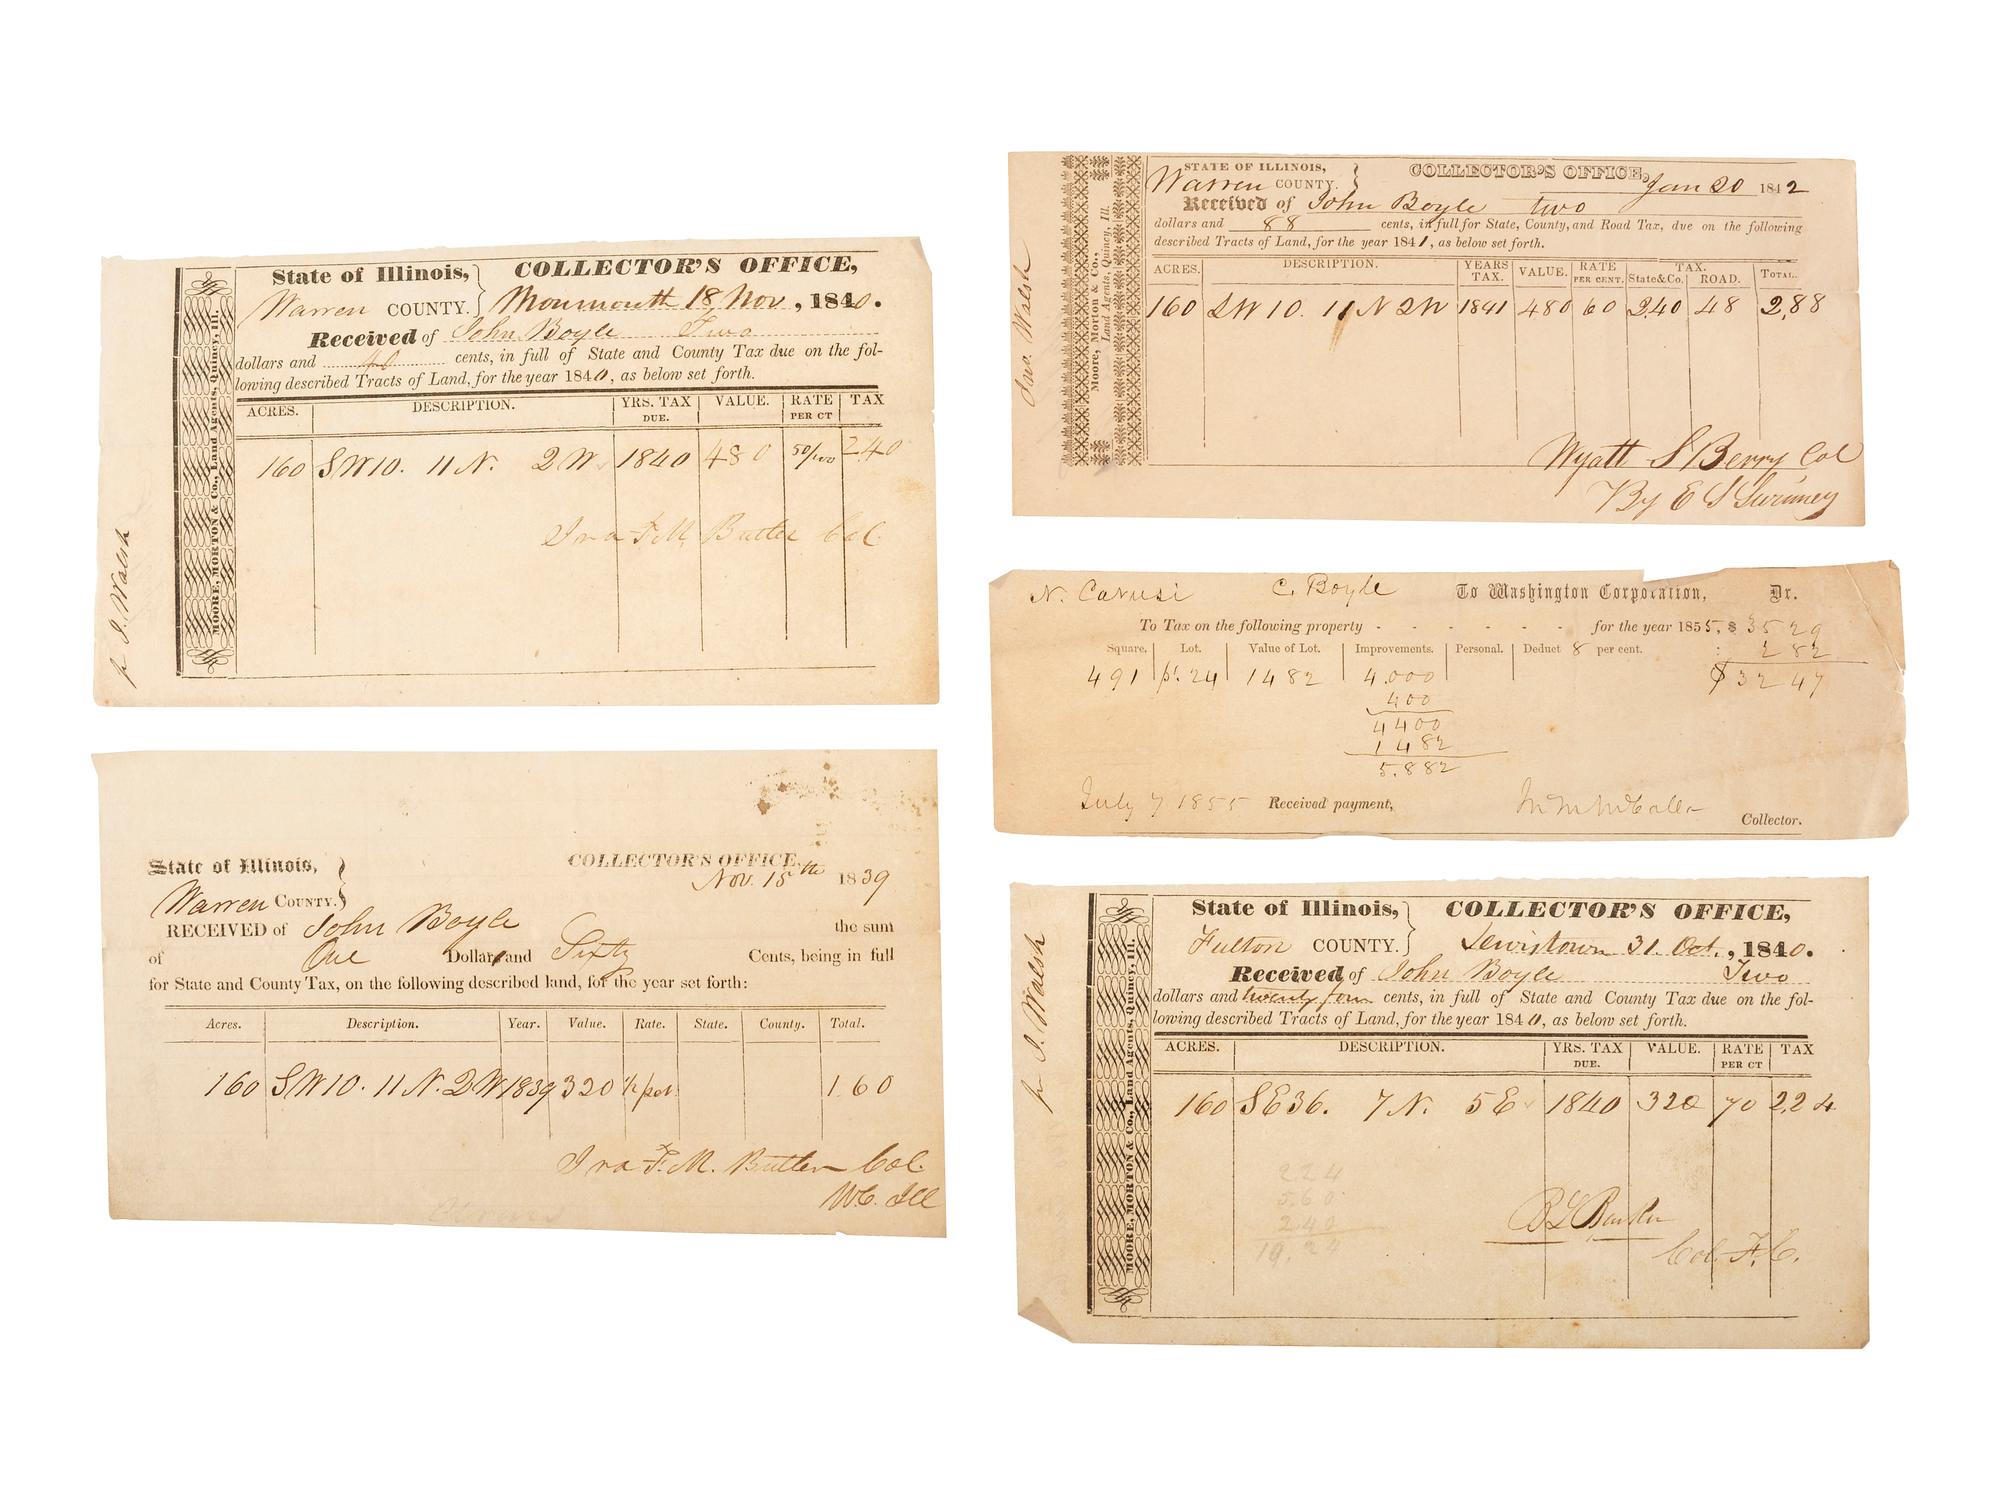 State of Illinois,
Warren COUNTY.
COLLECTOR'S OFFICE,
Monmouth 18 Nov, 1840.
Received of John Boyle Two
dollars and 40 cents, in full of State and County Tax due on the fol-
lowing described Tracts of Land, for the year 1840, as below set forth.
ACRES. DESCRIPTION. YRS. TAX DUE. VALUE. RATE PER CT TAX
160 SW10. 11 N. 2 W 1840 480 50/100 2.40
Ira F. M. Butler Col.
MOORE, MORTON & Co., Land Agents, Quincy, Ill.
pr J. Walsh
State of Illinois,
Warren COUNTY.
COLLECTOR'S OFFICE,
Nov. 15th 1839
RECEIVED of John Boyle the sum
of One Dollar and Sixty Cents, being in full
for State and County Tax, on the following described land, for the year set forth:
Acres. Description. Year. Value. Rate. State. County. Total.
160 SW10. 11 N. 2 W 1839 320 ½ pct. 1.60
Ira F. M. Butler Col.
W.C. Ill
STATE OF ILLINOIS,
Warren COUNTY.
COLLECTOR'S OFFICE, Jan 20 1842
Received of John Boyle two
dollars and 88 cents, in full for State, County, and Road Tax, due on the following
described Tracts of Land, for the year 1841, as below set forth.
ACRES. DESCRIPTION. YEARS TAX. VALUE. RATE PER CENT. TAX. State & Co. ROAD. TOTAL.
160 SW 10. 11 N 2W 1841 480 60 2.40 48 2,88
Wyatt S Berry Col
By E S
Moore, Morton & Co.,
Land Agents, Quincy, Ill.
Jno. Walsh
N. Carusi C. Boyle To Washington Corporation, Dr.
To Tax on the following property - - - - - - for the year 1855, $ 35 29
Square. Lot. Value of Lot. Improvements. Personal. Deduct 8 per cent. 2 82
491 pt. 24 1482 4.000 $ 32 47
400
4400
1482
5.882
July 7 1855 Received payment,
Collector.
State of Illinois,
Fulton COUNTY.
COLLECTOR'S OFFICE,
Lewistown 31. Oct., 1840.
Received of John Boyle Two
dollars and twenty four cents, in full of State and County Tax due on the fol-
lowing described Tracts of Land, for the year 1840, as below set forth.
ACRES. DESCRIPTION. YRS. TAX DUE. VALUE. RATE PER CT TAX
160 SE36. 7 N. 5 E 1840 320 70 2,24
224
5,60
240
10,24
Col. F. C.
MOORE, MORTON & Co., Land Agents, Quincy, Ill.
pr J. Walsh